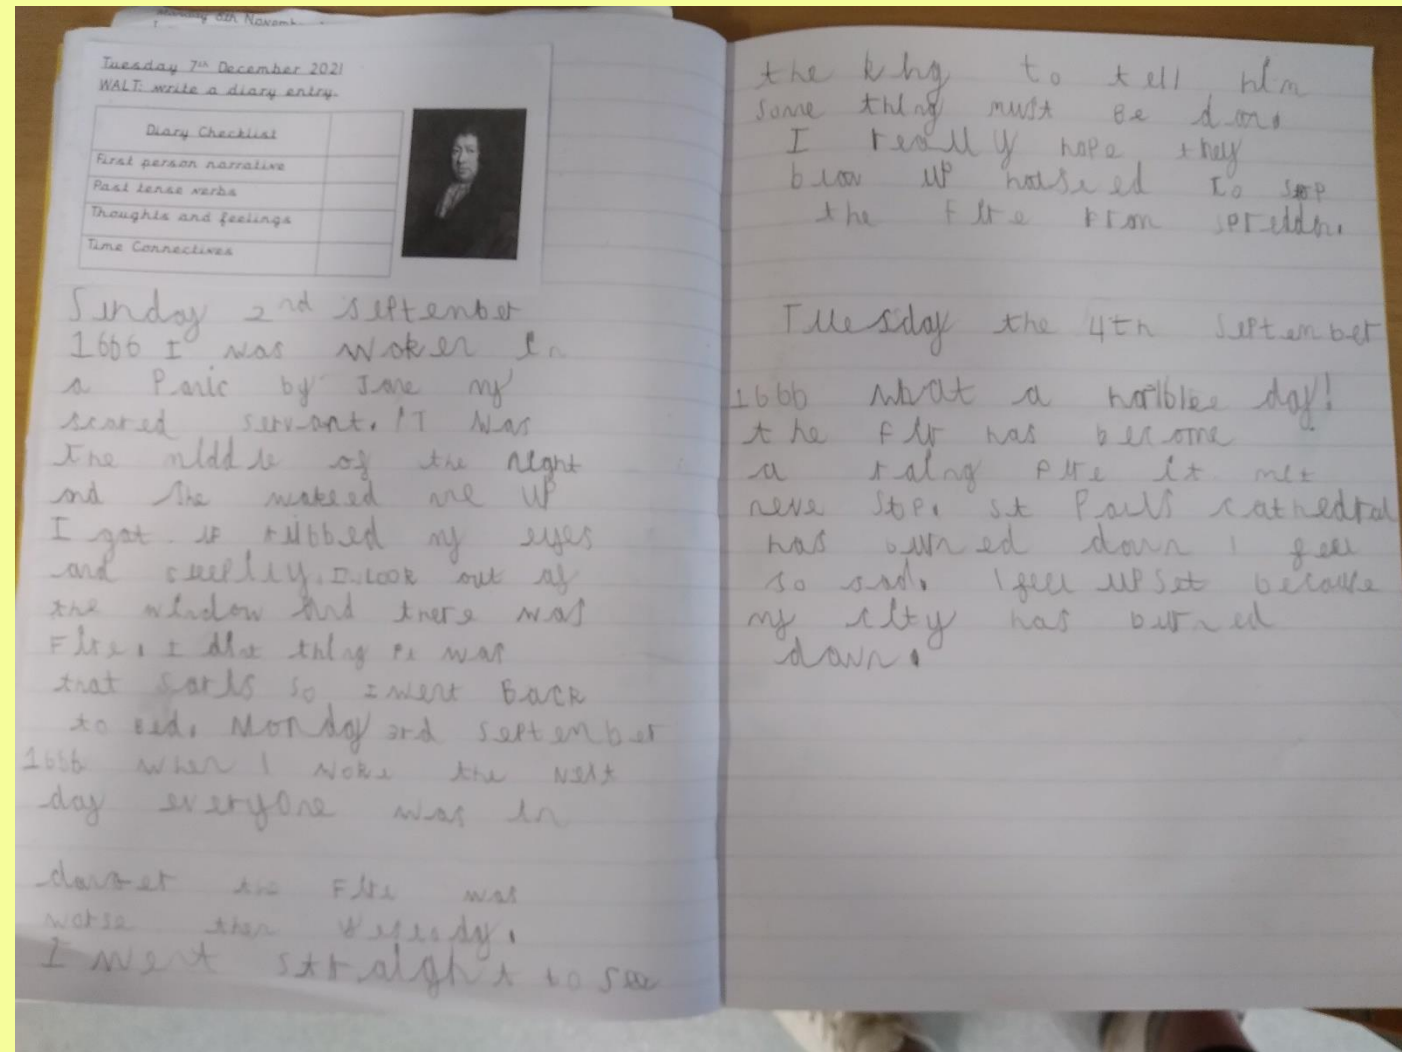 Monday 8th Novemb
Tuesday 7th December 2021
WALT: write a diary entry.
Diary Checklist
First person narrative
Past tense verbs
Thoughts and feelings
Time Connectives
Sunday 2nd september
1666 I was woken in
a Panic by Jane my
scared servant. IT was
The middle of the night
and She wakeed me up
I got up rubbed my eyes
and sleeply. I. Look out of
the window and there was
Fire. I thing was
that so I went Back
to Bed. Monday 3rd september
1666 when I woke the next
day everyone was in
danger the Fire was
worse then
I went straight to see
the king to tell him
some thing must Be done
I really hope they
blow up housed to stop
the Fire From spreddin.
Tuesday the 4th september
1666 what a day!
the has become
a raing Fire it
neve stop. st Pauls cathedral
has burned down I feel
so sad. I feel upset because
my city has burned
down.